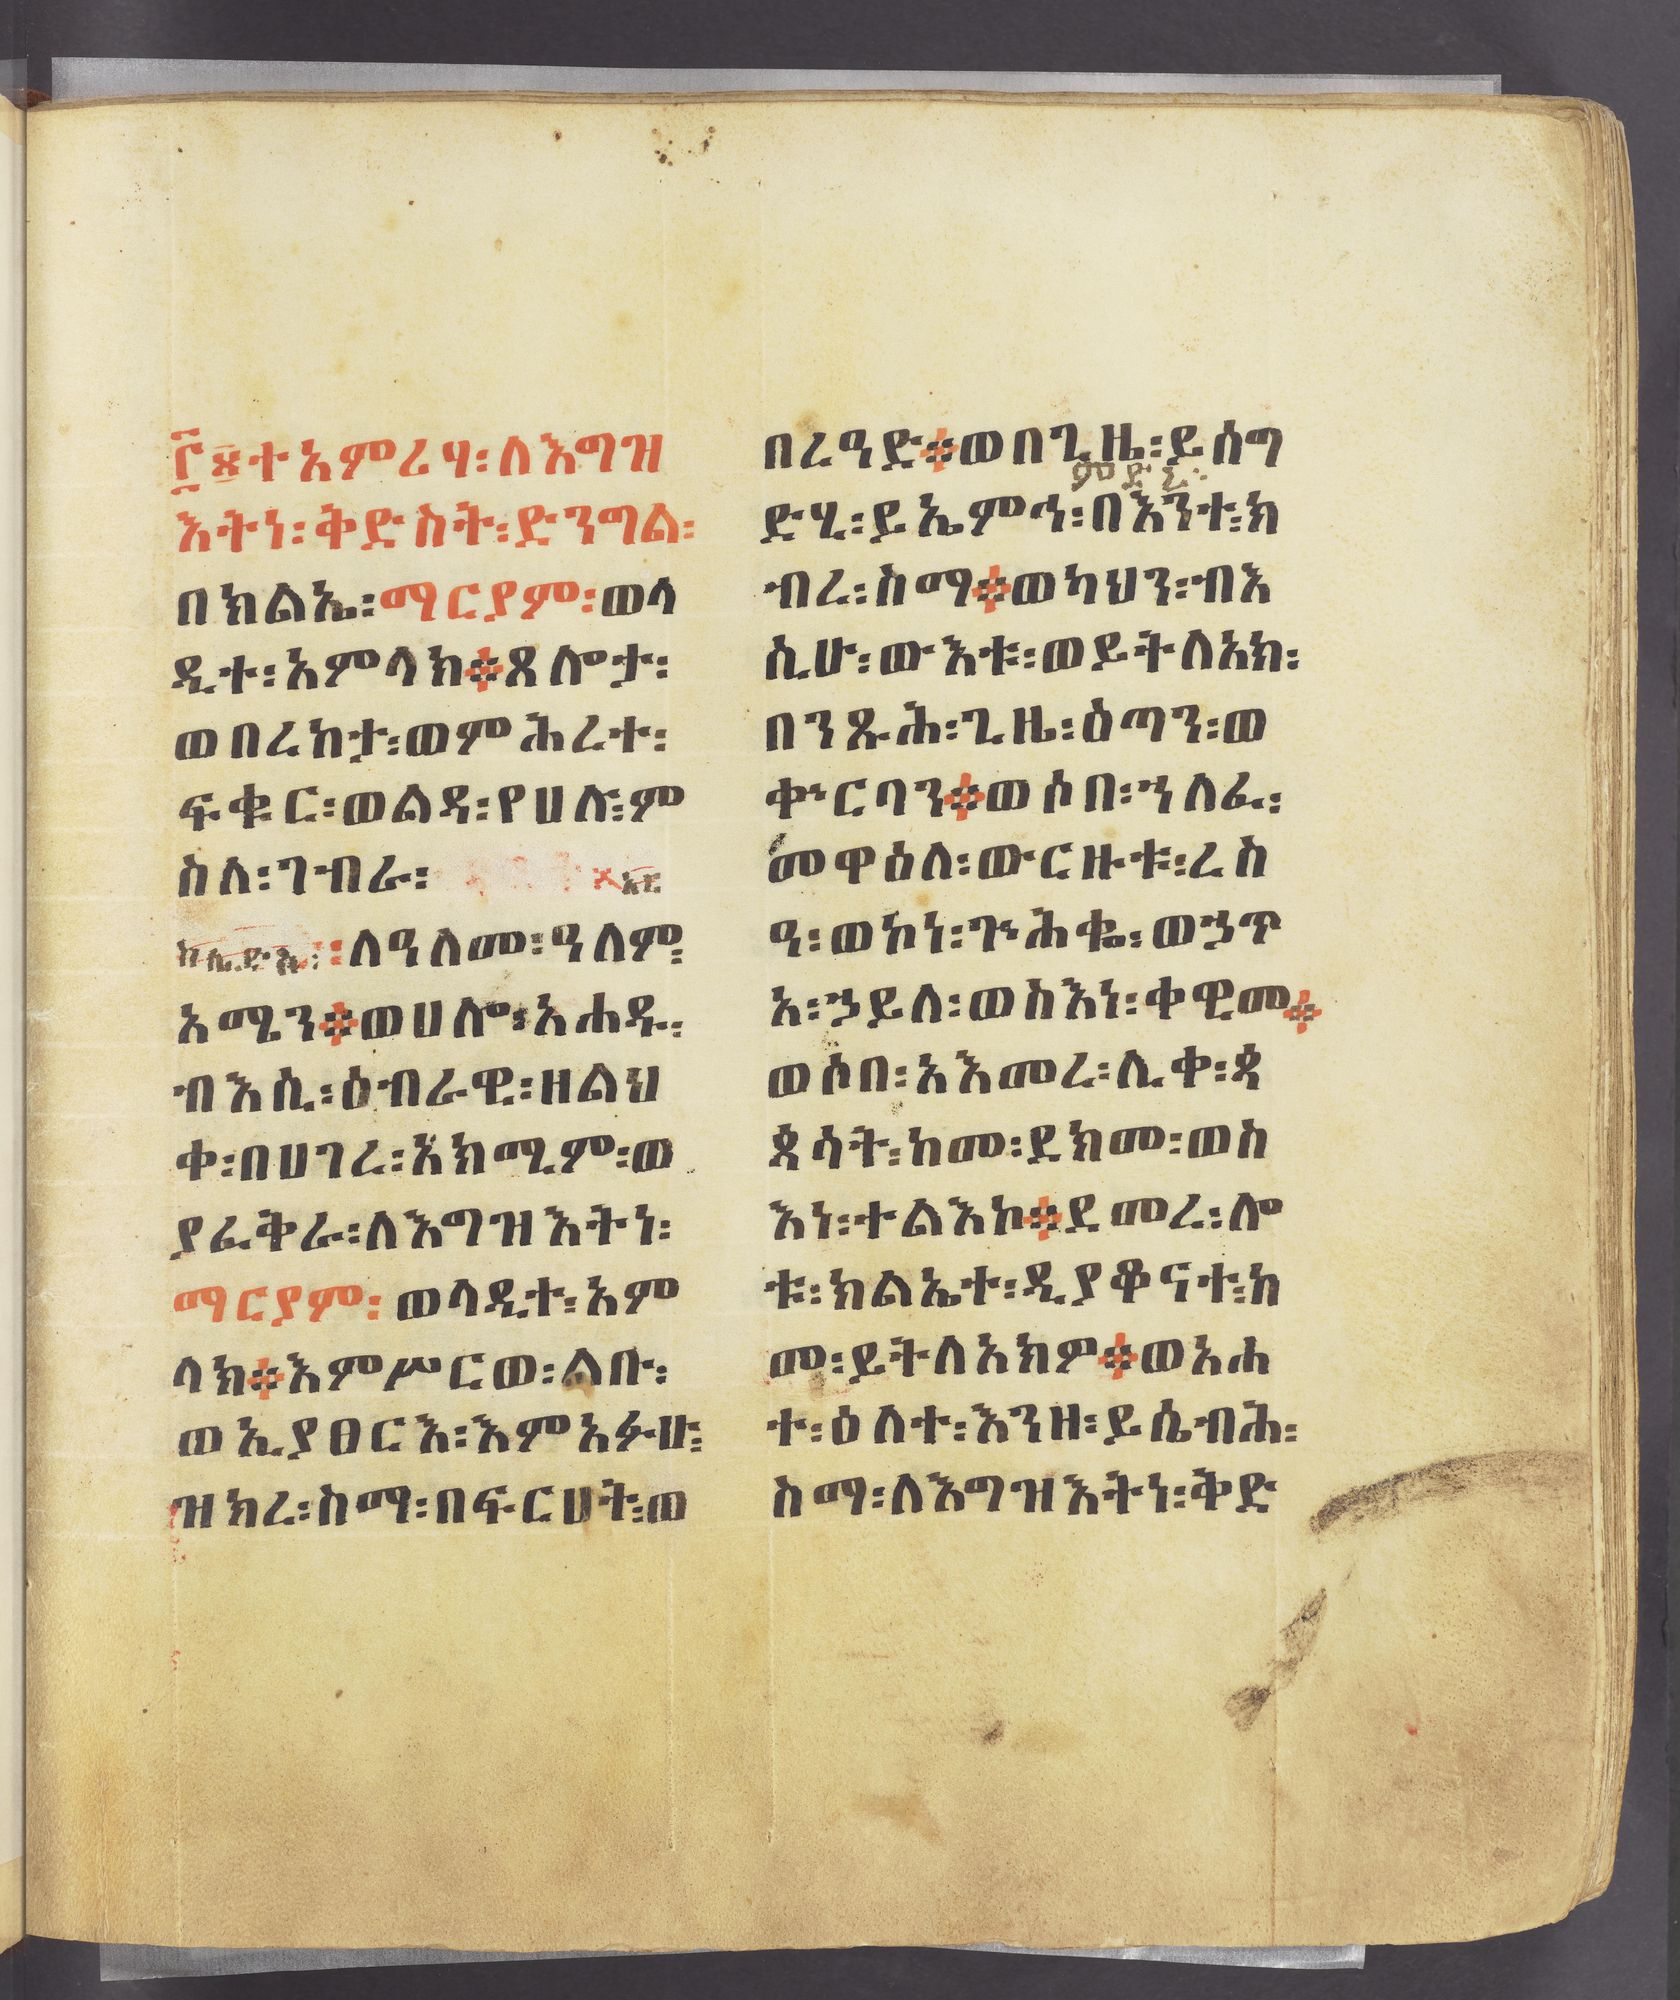 ፫፠ተአምሪሃ፡ለእግዝ
እትነ፡ቅድስት፡ድንግል፡
በክልኤ፡ማርያም፡ወላ
ዲተ፡አምላክ፨ጸሎታ፡
ወበረከታ፡ወምሕረተ፡
ፍቁር፡ወልዳ፡የሀሉ፡ም
ስለ፡ገብራ፡
፡ለዓለመ፡ዓለም፡
አሜን፨ወሀሎ፡አሐዱ፡
ብእሲ፡ዕብራዊ፡ዘልህ
ቀ፡በሀገረ፡አክሚም፡ወ
ያፈቅራ፡ለእግዝእትነ፡
ማርያም፡ወላዲተ፡አም
ላክ፨እምሥርወ፡ልቡ፡
ወኢያፀርእ፡እምአፉሁ፡
ዝክረ፡ስማ፡በፍርሀት፡ወ
በረዓድ፨ወበጊዜ፡ይሰግ
ምድረ፡
ድሂ፡ይኤምኅ፡በእንተ፡ክ
ብረ፡ስማ፨ወካህን፡ብእ
ሲሁ፡ውእቱ፡ወይትለአክ፡
በንጹሕ፡ጊዜ፡ዕጣን፡ወ
ቀኍርባን፨ወሶበ፡ኀለፈ፡
መዋዕለ፡ውርዙቱ፡ረስ
ዓ፡ወኮነ፡ጕሕቈ፡ወኃጥ
አ፡ኃይለ፡ወስእነ፡ቀዊመ፨
ወሶበ፡አእመረ፡ሊቀ፡ጳ
ጳሳት፡ከመ፡ደክመ፡ወስ
እነ፡ተልእኮ፨ደመረ፡ሎ
ቱ፡ክልኤተ፡ዲያቆናተ፡ከ
መ፡ይትለአክዎ፨ወአሐ
ተ፡ዕለተ፡እንዘ፡ይሴብሕ፡
ስማ፡ለእግዝእትነ፡ቅድ